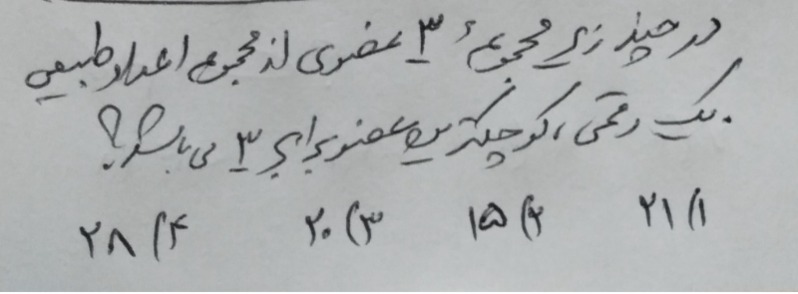 در چند زیر مجموعهٔ ۳ عضوی از مجموعه اعداد طبیعی
یک رقمی، کوچکترین عضو برابر ۳ می باشد؟
۱) ۲۱ ۲) ۱۵ ۳) ۲۰ ۴) ۲۸